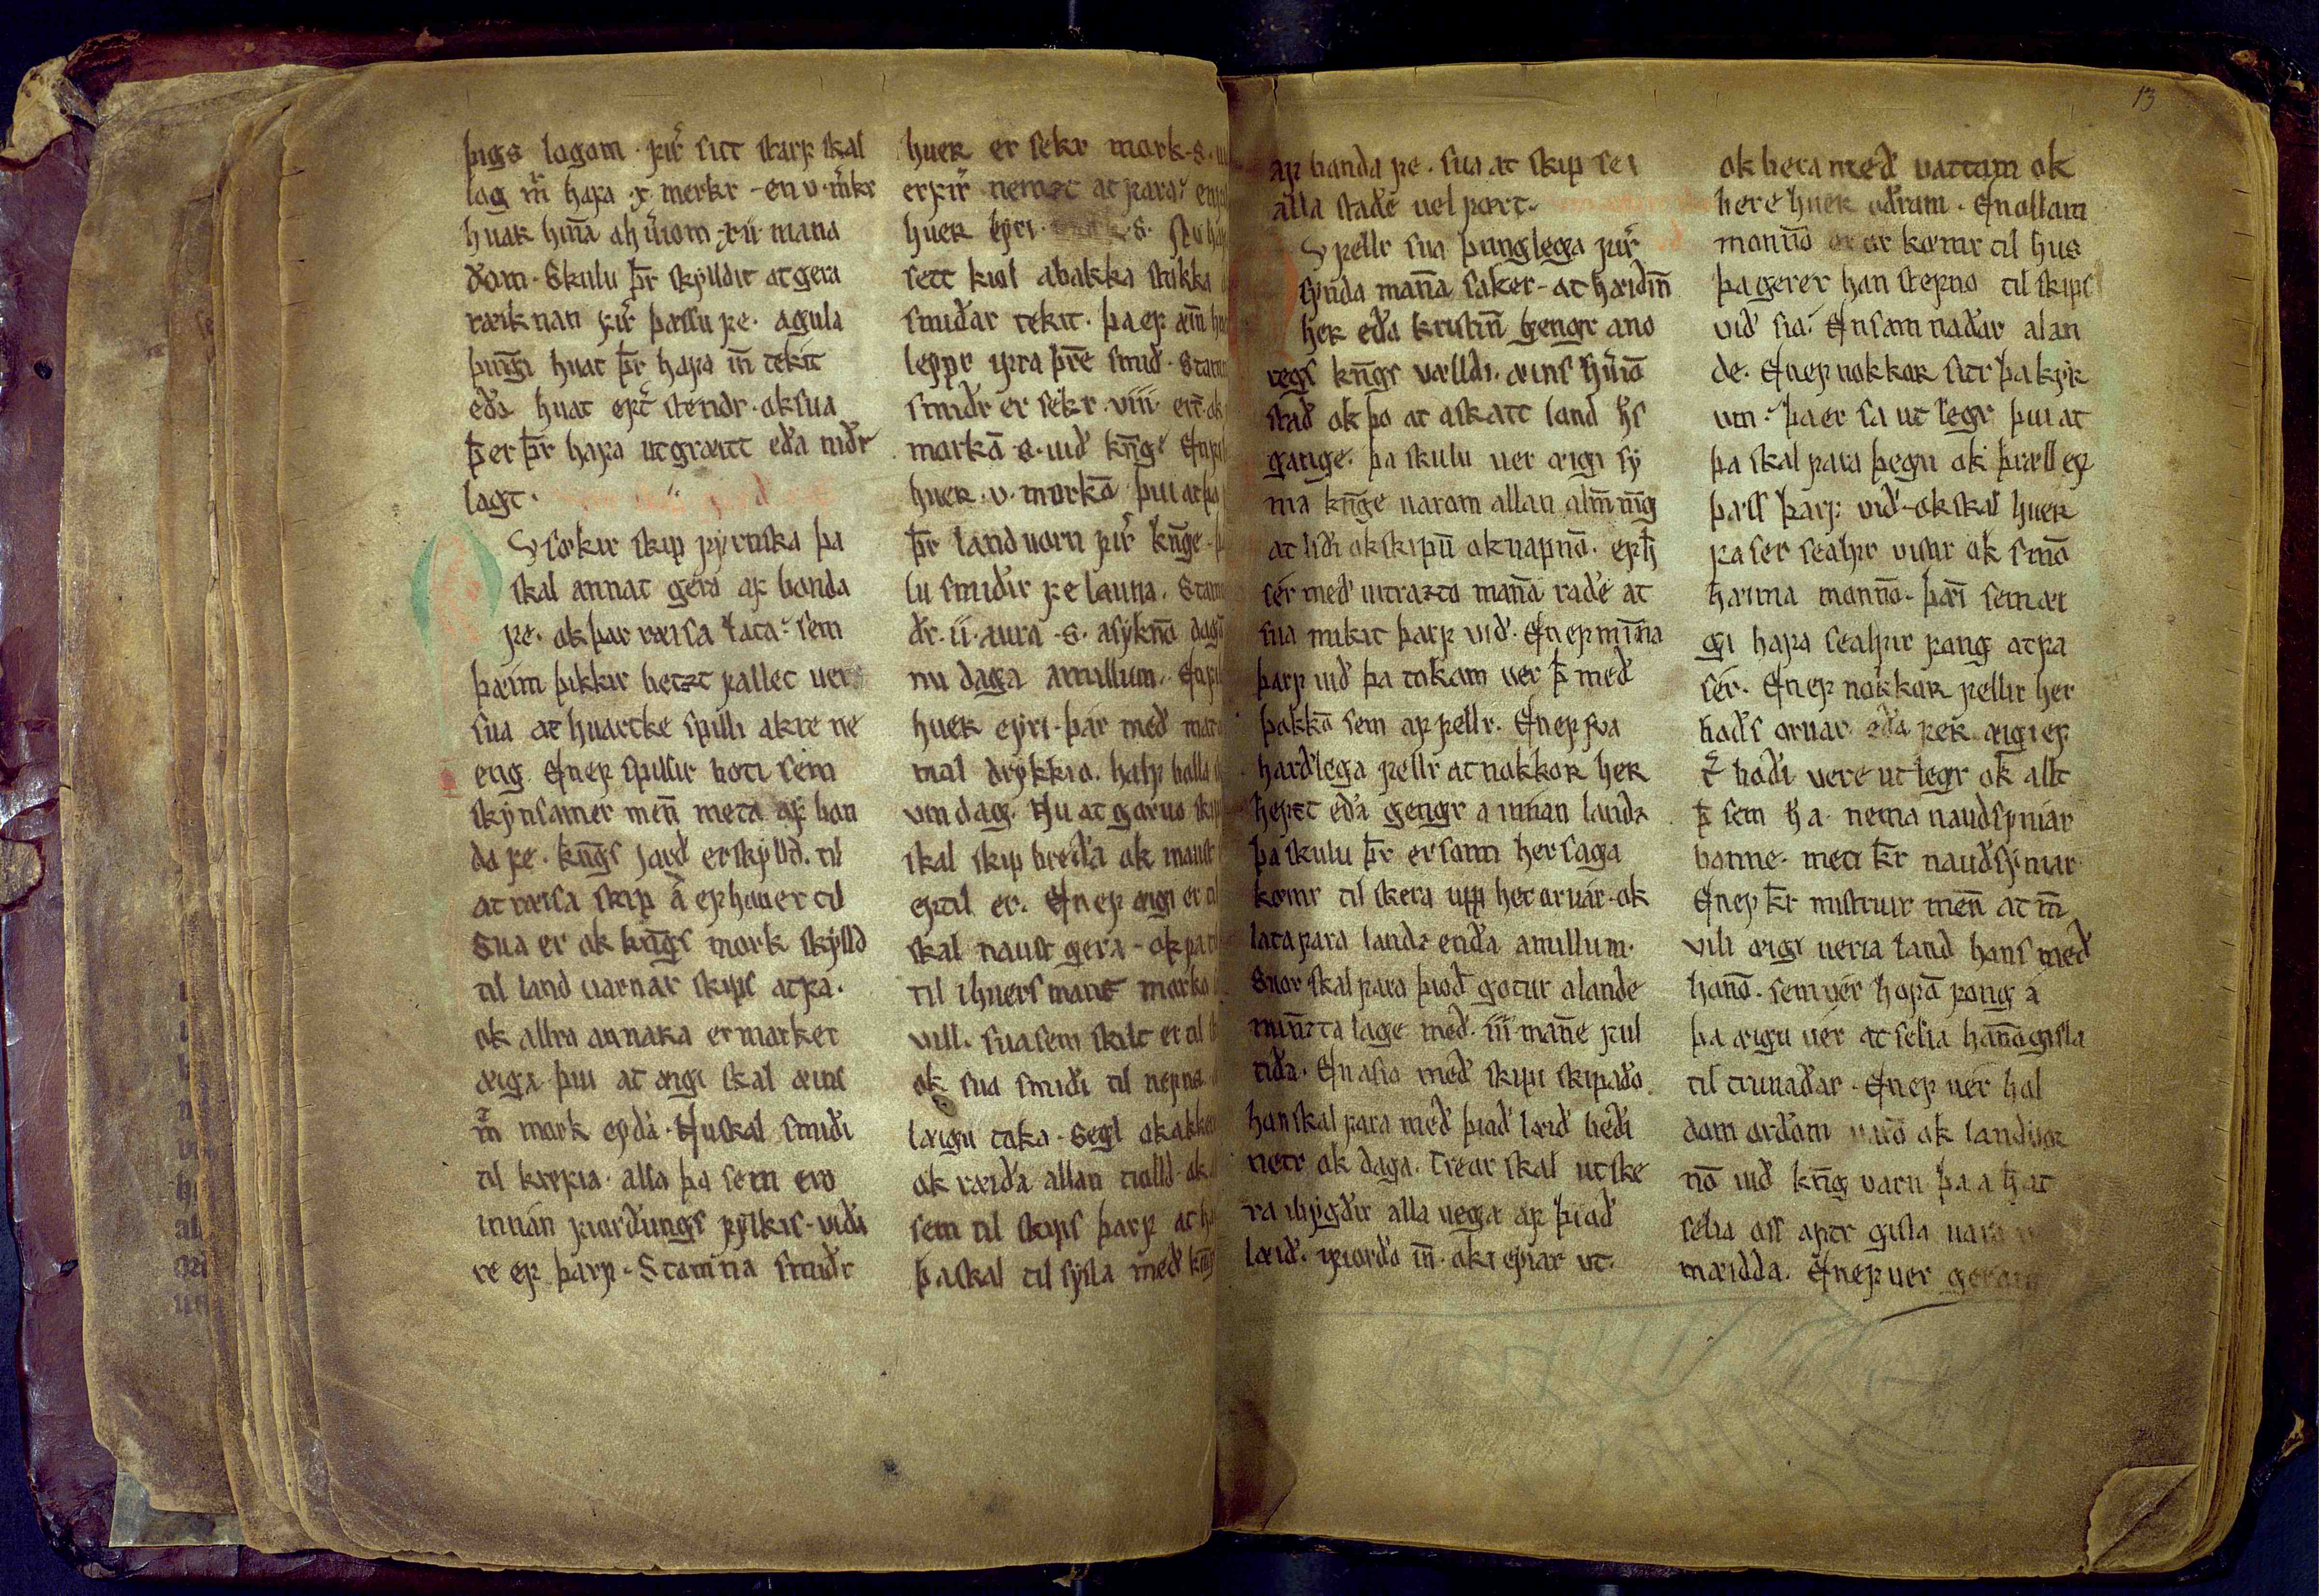 þıgs logom fır̃ sitt starf skal
lag m̃ hafa x merkr en v m̃kr
huar hın̄a ahũıom xíí mana
ðom. Skulu þr̄ skylldir at gera
ræiknan fır̃ þæssu fe. agula
þıngı huat þr̄ hafa ın̄ tekit
eða huat eft̃ stendr. ok sua
þ̄ er þr̄ hafa ut græitt eða niðr
lagt.
sœkır skıp fyrnska þa
skal annat gera af bonda
fe. ok þar ræisa lata sem
þæim þikkır betzt fallet
sua at huartke spilli akre ne
eng. En ef spillir bœti sem
skynsamer men̄ meta af bon
da fe. kn̄gs jarð er skylld til
at ræisa skip á ef hœuer til
Sua er ok kn̄gs mork skylld
til land varnar skips at fa.
ok allra annaRa er marker
æiga þui at æigi skal æins
m̃ mork eyða. Nu skal smiði
til krefia alla þa sem ero
innan fiorðungs fylkis viða
re ef þarf. Stamna smiðr
hueR er sekr mork s.
er fır̃ nemzt at fara en
hueR eyri s.
sett kiol abakka stokka
smiðar tekit. þa ef æin̄
leypr ifra þr̄e smið. Stam
smiðr er sekr viii ert. ok
morkū s. uið kn̄g. En
hueR v morkū þui at þa
þr̄ landuorn fır̃ kn̄ge
lu smiðır fe launa. Stam
ðr. íí. aura s. asyknū dagū
nu daga amillum. En
hueR eyri þar með mat
mal drykkio. half bolla
um dag. Nu at goruo skip
skal skip breiða ok naust
ef til er. En ef æigi er til
skal naust gera ok fa t
til ihuers manz morko
vill. sua sem skilt er til
ok sua smiði til nefna
læigu taka. Segl ok akkeri
ok ræiða allan tiolld ok
sem til skips þarf at ha
þa skal til sysla með kn̄gs
af bonda fe. sua at skip sei
alla staðe uel fœrt.
fellr sua þunglega fır̃
synda man̄a saker at hæiðin̄
heR eða kristin̄ gengr ano
regs kn̄gs vælldi. æins hũıō
stað ok þo at askatt land h̄s
gange. þa skulu uer æigi sy
nia kn̄ge uarom allan alm̄nīg
at liði ok skipū ok uapnō. eft̄
ser með uitrazto man̄a raðe at
sua mikit þarf uið. En ef min̄a
þarf uið þa tokom uer þ̄ með
þakkō sem af fellr. En ef sva
harðlega fellr at nokkoR heR
hefst eða gengr a innan landz
þa skulu þr̄ er sann hersaga
kømr til skera upp heroruar. ok
lata fara landz enða amillum.
Snor skal fara þioð gotur alande
min̄zta lage með. ııı man̄e ful
tiða. En asio með skipi skipaðo.
han skal fara með þioð læið beði
netr ok daga. Treor skal ut ske
ra ibygðir alla uega af þioð
læið. ifiorðo in̄. ok i eyiar ut.
ok bera með uattom ok
bere hueR oðrum. En ollom
monnō er or kømr til hus
þa gerer han stefno til skips
við siá. En samnaðar alan
de. En ef nokkoR sitr þa kyR
um. þa er sa ut legr. þui at
þa skal fara þegn ok þræll ef
þæss þarf við. ok skal hueR
fa ser sealfr vistir ok sinō
hæima monnō. þæi sem æi
gi hafa sealfuir fong at fa
sér. En ef nokkoR fellir her
boðs oruar eða feR æigi ef
t̃ boði vere utlegr ok allt
þ̄ sem h̄ a. nema nauðsyniar
banne. meti þr̄ nauðsyniar.
En ef þr̄ mistruir men̄ at m̄
vili æigi ueria land hans með
hanō. sem uér hofū fong á
þa æigu uér at selia hanō gisla
til trunaðar. En ef uér hol
dom orðom ok landuor
nō uið kn̄g varn þa a h̄ at
selia oss aftr gisla vara
mæidda. En ef uer gerom
13